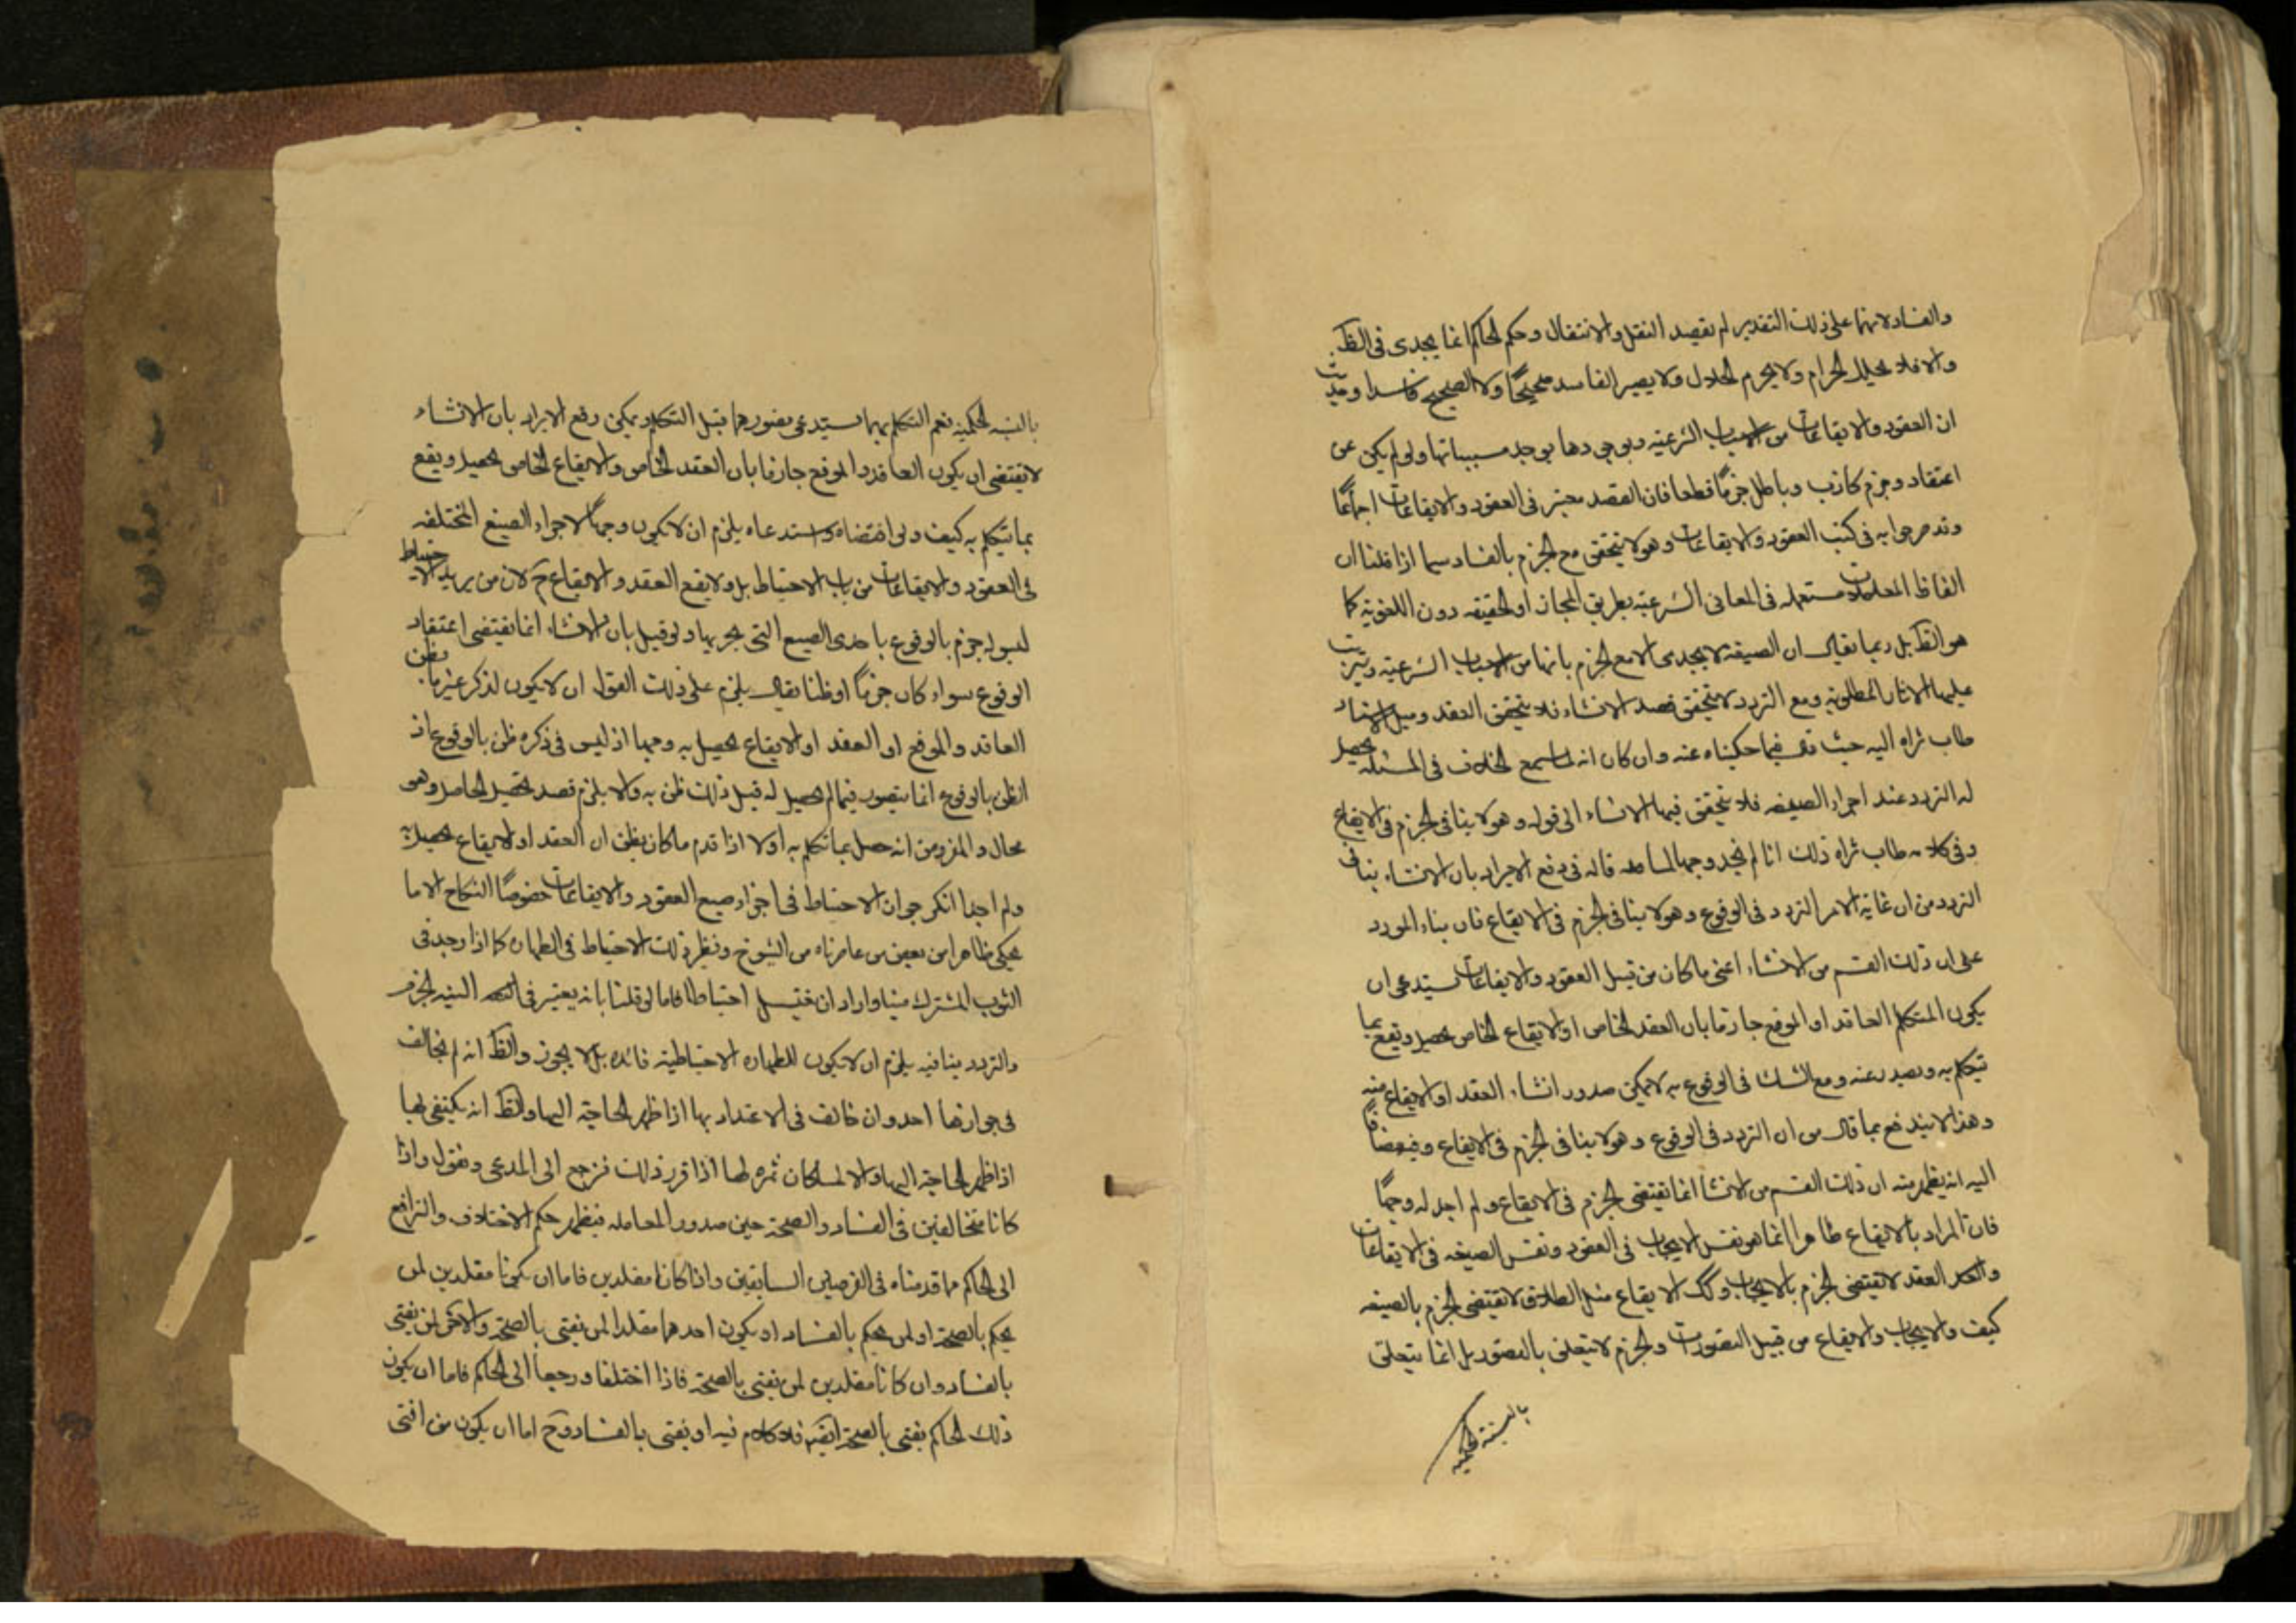 والفساد لانهما على ذلك التقدير لم يقصد النقل والانتقال وحكم الحاكم انما يجدى فى الظ
والا فلا يحلل الحرام ولا يحرم الحلال ولا يصير الفاسد صحيحًا ولا الصحيح فاسدا وحيث
ان العقود والايقاعات من الاسباب الشرعيه وبوجودها يوجد مسبباتها ولو لم يكن عن
اعتقاد وجزم كاذب وباطل جزمًا قطعا فان القصد معتبر فى العقود والايقاعات اجماعًا
وقد صرحوا به فى كتب العقود والايقاعات وهو لا يتحقق مع الجزم بالفساد سيما اذا قلنا ان
الفاظ المعاملات مستعمله فى المعانى الشرعيه بطريق المجاز او الحقيقه دون اللغويه كما
هو الظ بل ربما يقال ان الصيغه لا يجدى الا مع الجزم بانها من الاسباب الشرعيه ويترتب
عليها الاثار المطلوبه ومع التردد لا يتحقق قصد الانشاء فلا يتحقق العقد وميل الاستاد
طاب ثراه اليه حيث قال فيما حكيناه عنه وان كان انه لما سمع الخلاف فى المسئله يحصل
له التردد عند اجراء الصيغه فلا يتحقق فيها الانشاء الى قوله وهو لا ينافى الجزم فى الايقاع
وفى كلامه طاب ثراه ذلك انا لم نجد وجها لما قاله فى دفع الايراد بان الانشاء ينافى
التردد من ان غاية الامر التردد فى الوقوع وهو لا ينافى الجزم فى الايقاع فان بناء المورد
على ان ذلك القسم من الانشاء اعنى ما كان من قبيل العقود والايقاعات يستدعى ان
يكون المتكلم العاقد او الموقع جازما بان العقد الخاص او الايقاع الخاص يحصل ويقع بما
يتكلم به ويصدر عنه ومع الشك فى الوقوع به لا يمكن صدور انشاء العقد او الايقاع منه
وهذا لا يندفع بما قال من ان التردد فى الوقوع وهو لا ينافى الجزم فى الايقاع
اليه انه يظهر منه ان ذلك القسم من الانشا انما يقتضى الجزم فى الايقاع ولم اجد له وجهًا
فان المراد بالايقاع ظاهرا انما هو نفس الايجاب فى العقود ونفس الصيغه فى الايقاعات
العقد لا يقتضى الجزم بالايجاب وكك الايقاع مثل الطلاق لا يقتضى الجزم بالصيغه
كيف والايجاب والايقاع من قبيل التصورات والجزم لا يتعلق بالتصور بل انما يتعلق
بالنسبة الحكميه
بالنسبه الحكميه نعم التكلم بهما يستدعى تصورهما قبل التكلم ويمكن دفع الايراد بان الانشاء
لا يقتضى ان يكون العاقد والموقع جازما بان العقد الخاص والايقاع الخاص يحصل ويقع
بما يتكلم به كيف ولو اقتضاه واستدعاه يلزم ان لا يكون وجهًا لاجراء الصيغ المختلفه
فى العقود والايقاعات من باب الاحتياط بل ولا يقع العقد والايقاع ح لان من يريد الاحتياط
ليس له جزم بالوقوع باحدى الصيغ التى يجريها ولو قيل بان الانشاء انما يقتضى اعتقاد
الوقوع سواء كان جزمًا او ظنا يقال يلزم على ذلك القول ان لا يكون لذكر غير ما يظن
العاقد والموقع ان العقد او الايقاع يحصل به وجها اذ ليس فى ذكره ظن بالوقوع اذ
الظن بالوقوع انما يتصور فيما لم يحصل له قبل ذلك ظن به والا يلزم قصد تحصيل الحاصل وهو
محال والمفروض انه حصل بما تكلم به اولا اذا قدم ما كان يظن ان العقد او الايقاع يحصل به
ولم اجد انكر جوان الاحتياط فى اجراء صيغ العقود والايقاعات خصوصًا النكاح الا ما
يحكى ظاهرا من بعض من عاصرناه من الشيوخ ونظير ذلك الاحتياط فى الطهارة كما اذا وجد فى
الثوب المشترك منيا واراد ان يغتسل احتياطا فاما لو قلنا بانه يعتبر فى النيه الجزم
والتردد ينافيه يلزم ان لا يكون للطهاره الاحتياطيه فائده بل لا يجوز والظ انه لم يخالف
فى جوازها احد وان خالف فى الاعتداد بها اذا ظهر الحاجة اليها والظ انه يكتفى بها
اذا ظهر الحاجة اليها والا لما كان ثمره لها اذا قرر ذلك فنرجع الى المدعى ونقول واذا
كانا متخالفين فى الفساد والصحة حين صدور المعامله فيظهر حكم الاختلاف والترافع
الى الحاكم مما قدمناه فى الفرضين السابقين واذا كانا مقلدين فاما ان يكونا مقلدين لمن
يحكم بالصحة او لمن يحكم بالفساد او يكون احدهما مقلدا لمن يفتى بالصحة والاخر لمن يفتى
بالفساد وان كانا مقلدين لمن يفتى بالصحة فاذا اختلفا ورجعا الى الحاكم فاما ان يكون
ذلك الحاكم يفتى بالصحة ايضا فلا كلام فيه او يفتى بالفساد وح اما ان يكون من افتى